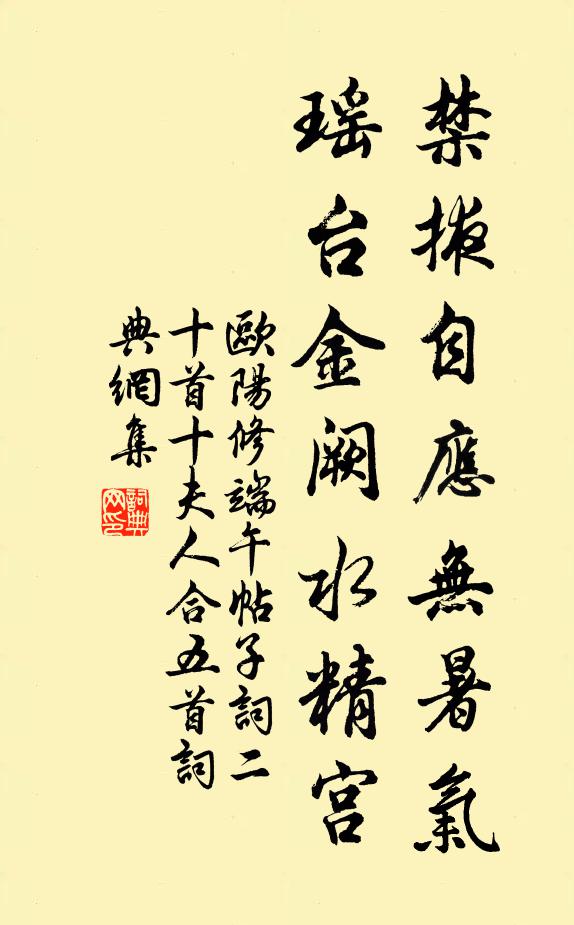 禁掖自應無暑氣
瑶台金阙水精宫
歐陽修端午帖子詞二
十首十夫人合五首詞
典網集
詞典网印